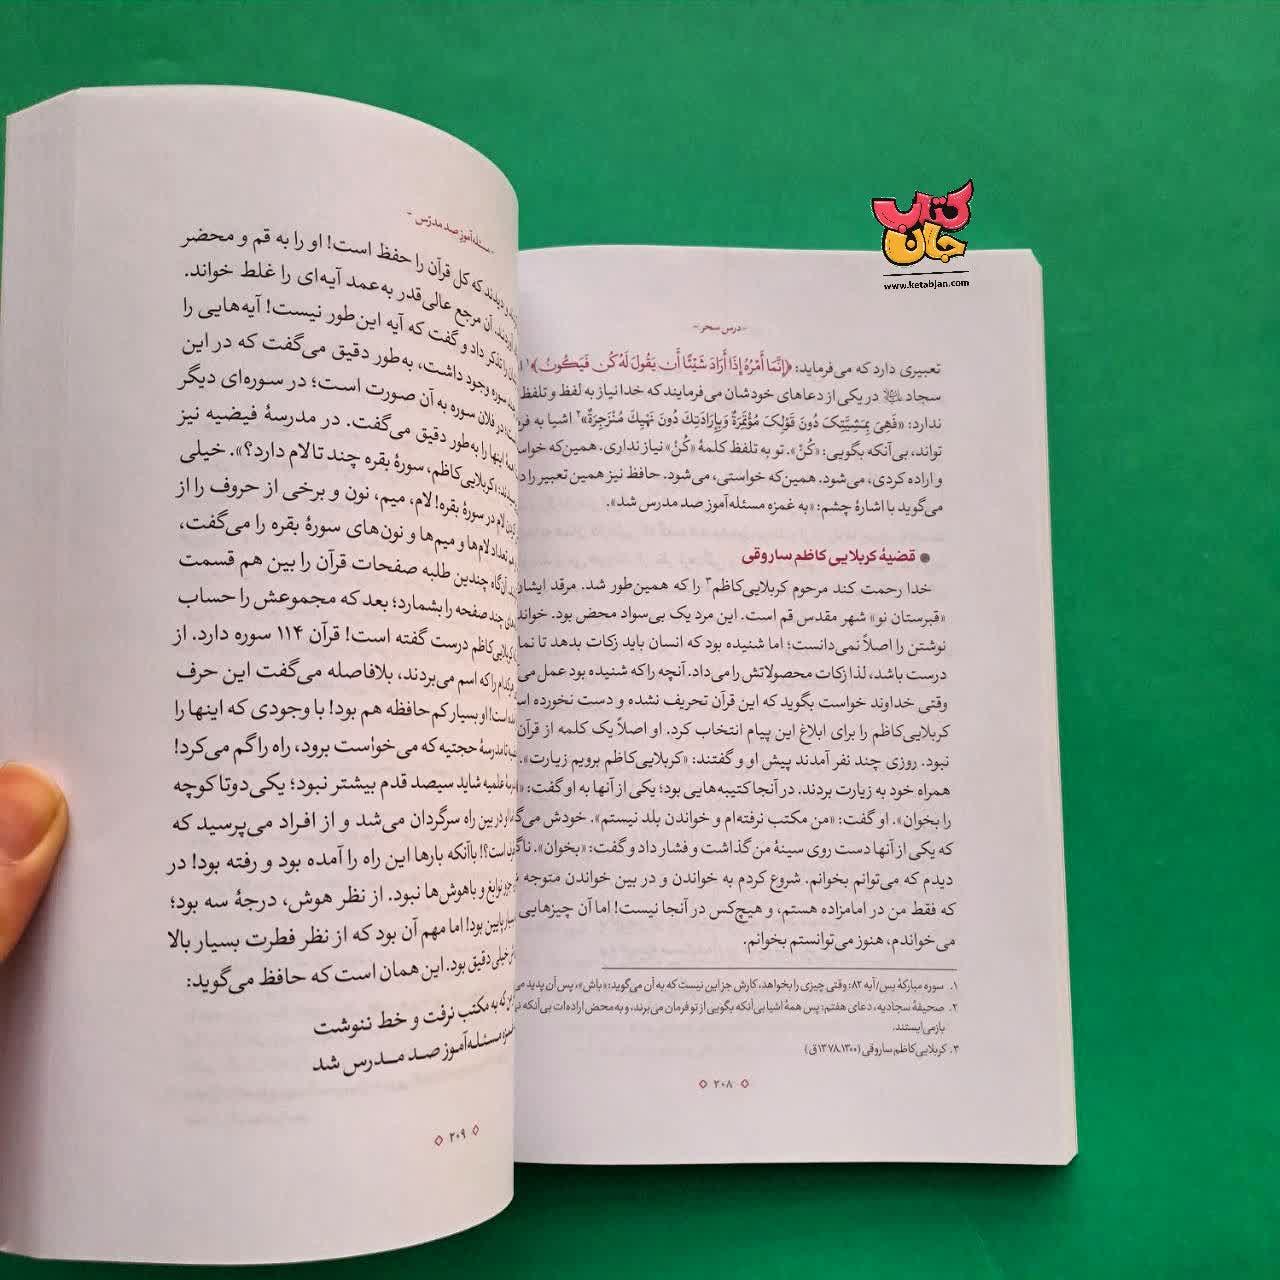 کتاب جان
www.ketabjan.com
- درس سحر -
تعبیری دارد که می‌فرماید: ﴿إِنَّمَا أَمْرُهُ إِذَا أَرَادَ شَيْئًا أَن يَقُولَ لَهُ كُن فَيَكُونُ﴾۱
سجاد در یکی از دعاهای خودشان می‌فرمایند که خدا نیاز به لفظ و تلفظ
ندارد: «فَهِيَ بِمَشِيَّتِكَ دُونَ قَوْلِكَ مُؤْتَمِرَةٌ وَبِإِرَادَتِكَ دُونَ نَهْيِكَ مُنْزَجِرَةٌ»۲ اشیا به
تواند، بی‌آنکه بگویی: «کُنْ». تو به تلفظ کلمهٔ «کُنْ» نیاز نداری. همین‌که
و اراده کردی، می‌شود. همین‌که خواستی، می‌شود. حافظ نیز همین تعبیر را
می‌گوید با اشارهٔ چشم: «به غمزه مسئله‌آموز صد مدرس شد».
● قضیهٔ کربلایی کاظم ساروقی
خدا رحمت کند مرحوم کربلایی‌کاظم۳ را که همین‌طور شد. مرقد ایشان
«قبرستان نو» شهر مقدس قم است. این مرد یک بی‌سواد محض بود.
نوشتن را اصلاً نمی‌دانست؛ اما شنیده بود که انسان باید زکات بدهد تا
درست باشد، لذا زکات محصولاتش را می‌داد. آنچه را که شنیده بود عمل
وقتی خداوند خواست بگوید که این قرآن تحریف نشده و دست نخورده
کربلایی‌کاظم را برای ابلاغ این پیام انتخاب کرد. او اصلاً یک کلمه از قرآن
نبود. روزی چند نفر آمدند پیش او و گفتند: «کربلایی‌کاظم برویم زیارت».
همراه خود به زیارت بردند. در آنجا کتیبه‌هایی بود؛ یکی از آنها به او گفت:
را بخوان». او گفت: «من مکتب نرفته‌ام و خواندن بلد نیستم». خودش
که یکی از آنها دست روی سینهٔ من گذاشت و فشار داد و گفت: «بخوان».
دیدم که می‌توانم بخوانم. شروع کردم به خواندن و در بین خواندن متوجه
که فقط من در امامزاده هستم، و هیچ‌کس در آنجا نیست! اما آن چیزهایی
می‌خواندم، هنوز می‌توانستم بخوانم.
۱. سوره مبارکهٔ یس/ آیه ۸۲: وقتی چیزی را بخواهد، کارش جز این نیست که به آن می‌گوید: «باش»، پس آن پدید
۲. صحیفهٔ سجادیه، دعای هفتم: پس همهٔ اشیا بی‌آنکه بگویی از تو فرمان می‌برند، و به محض اراده‌ات بی‌آنکه
بازمی‌ایستند.
۳. کربلایی کاظم ساروقی (۱۳۰۰ـ۱۳۷۸ق)
۲۰۸
- مسئله‌آموز صد مدرس -
دیدند که کل قرآن را حفظ است! او را به قم و محضر
آوردند. آن مرجع عالی‌قدر به‌عمد آیه‌ای را غلط خواند.
تذکر داد و گفت که آیه این‌طور نیست! آیه‌هایی را
سوره وجود داشت، به‌طور دقیق می‌گفت که در این
در فلان سوره به آن صورت است؛ در سوره‌ای دیگر
اینها را به‌طور دقیق می‌گفت. در مدرسهٔ فیضیه نیز
«کربلایی‌کاظم، سورهٔ بقره چند تا لام دارد؟». خیلی
لام در سورهٔ بقره! لام، میم، نون و برخی از حروف را از
تعداد لام‌ها و میم‌ها و نون‌های سورهٔ بقره را می‌گفت،
آن‌گاه چندین طلبه صفحات قرآن را بین هم قسمت
چند صفحه را بشمارد؛ بعد که مجموعش را حساب
کربلایی‌کاظم درست گفته است! قرآن ۱۱۴ سوره دارد. از
را که اسم می‌بردند، بلافاصله می‌گفت این حرف
است! او بسیار کم‌حافظه هم بود! با وجودی که اینها را
تا مدرسهٔ حجتیه که می‌خواست برود، راه را گم می‌کرد!
علمیه شاید سیصد قدم بیشتر نبود؛ یکی‌دوتا کوچه
او در بین راه سرگردان می‌شد و از افراد می‌پرسید که
است؟! باآنکه بارها این راه را آمده بود و رفته بود! در
جزو نوابغ و باهوش‌ها نبود. از نظر هوش، درجهٔ سه بود؛
پایین بود! اما مهم آن بود که از نظر فطرت بسیار بالا
خیلی دقیق بود. این همان است که حافظ می‌گوید:
که به مکتب نرفت و خط ننوشت
مسئله‌آموز صد مدرس شد
۲۰۹